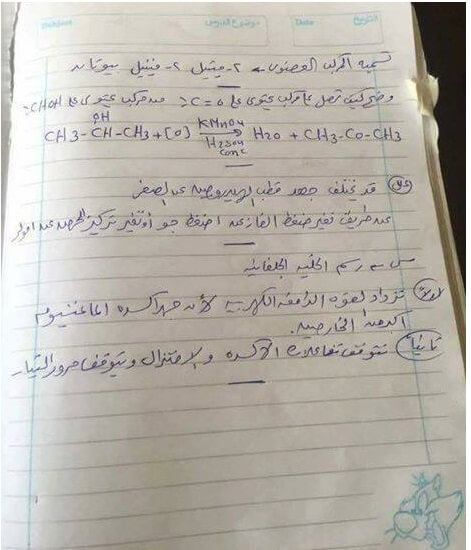 Subject موضوع الدرس Date التاريخ
تسمية المركب العضوى ← ٢- ميثيل ٢- فينيل بيوتان
وضح كيف نحصل على مركب يحتوى على C = O من مركب يحتوى على CHOH
OH
CH3 - CH - CH3 + [O] KMnO4 H2SO4 Conc H2O + CH3 - CO - CH3
علل قد يختلف جهد قطب الهيدروجين عن الصفر
عن طريق تغير ضغط الغاز عن ١ ضغط جو أو تغير تركيز الحمض عن ١ مولر
س من رسم الخلية الجلفانية
أولاً تزداد القوة الدافعة الكهربية لأن جهد أكسدة الماغنسيوم
أكبر من الخارصين.
ثانياً تتوقف تفاعلات الأكسدة والإختزال ويتوقف مرور التيار